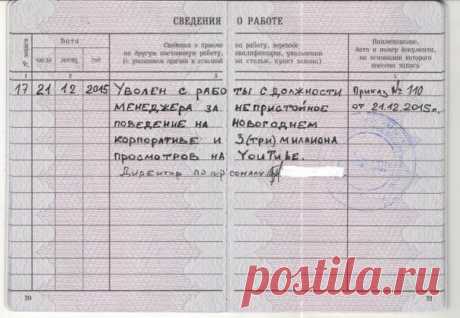 СВЕДЕНИЯ О РАБОТЕ
№ записи
Дата
число
месяц
год
Сведения о приеме на работу, переводе
на другую постоянную работу, квалификации, увольнении
(с указанием причин и ссылкой на статью, пункт закона)
Наименование,
дата и номер документа,
на основании которого
внесена запись
1 2 3 4
17 21 12 2015 УВОЛЕН С РАБОТЫ С ДОЛЖНОСТИ Приказ № 110
МЕНЕДЖЕРА ЗА НЕПРИСТОЙНОЕ от 21.12.2015г.
ПОВЕДЕНИЕ НА НОВОГОДНЕМ
КОРПОРАТИВЕ И 3(ТРИ) МИЛИОНА
ПРОСМОТРОВ НА YOUTUBE.
Директор по персоналу
20 21
postila.ru